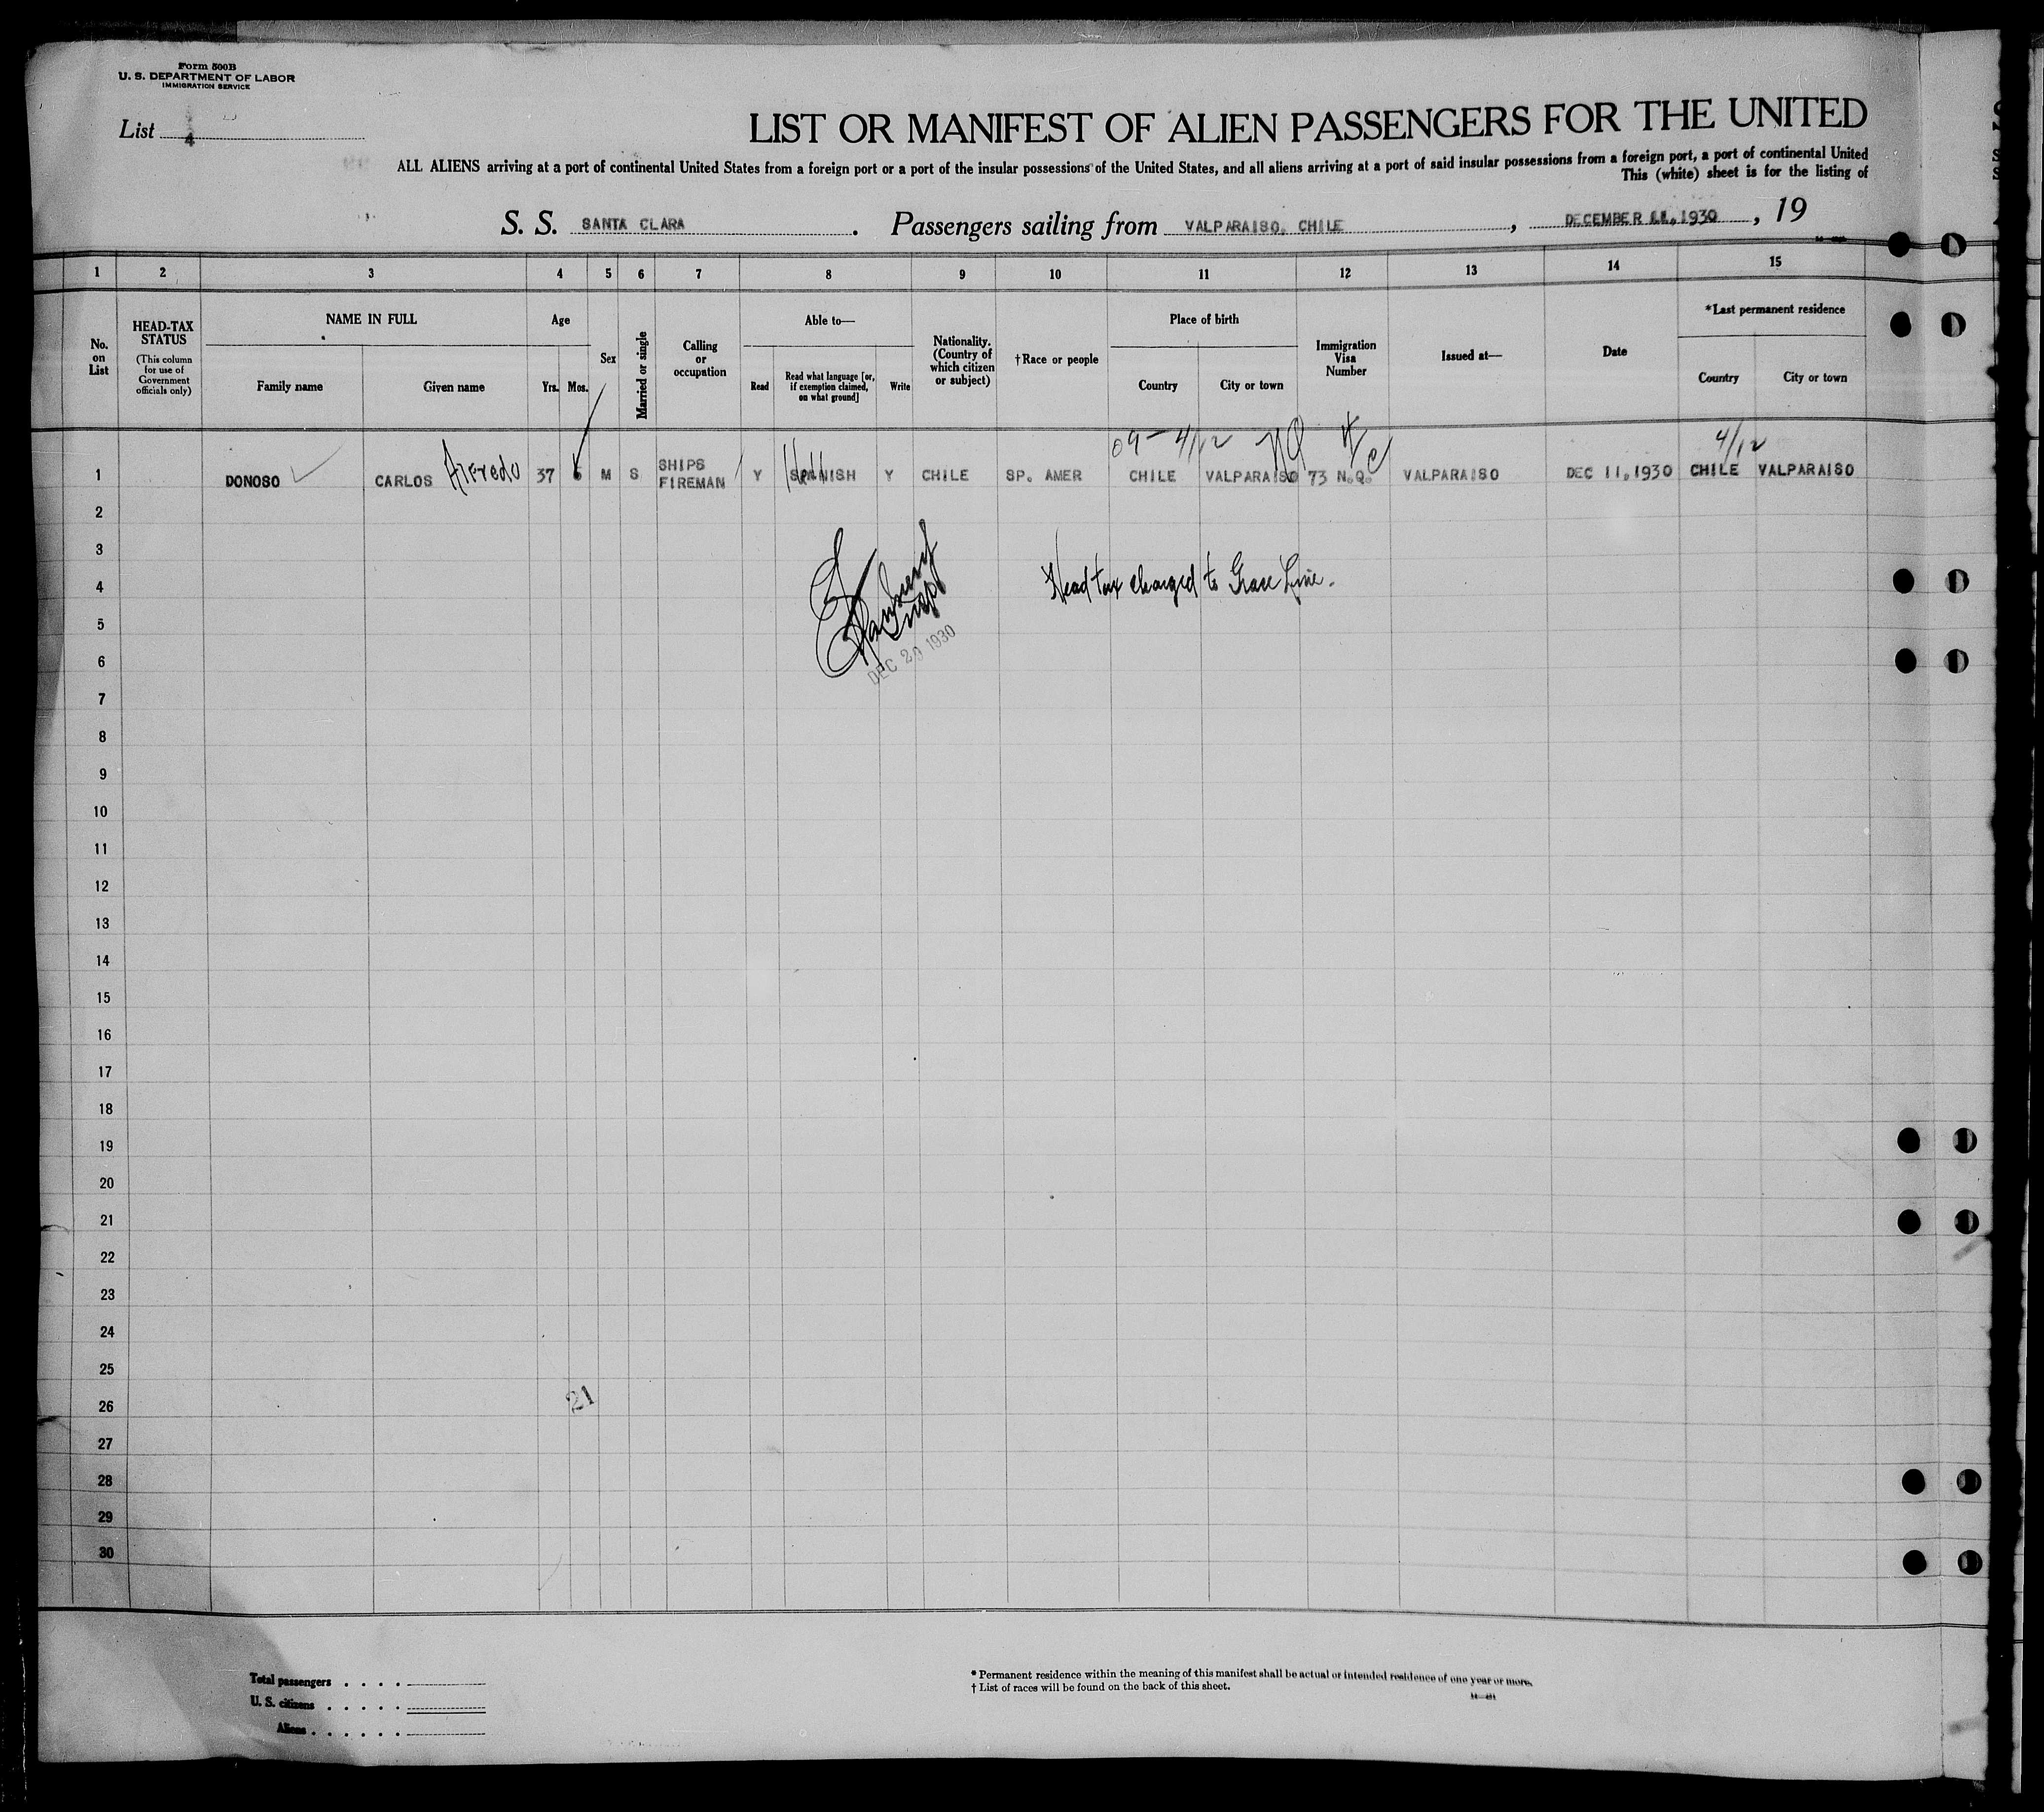 Form 500B
U. S. DEPARTMENT OF LABOR
IMMIGRATION SERVICE
List 4
LIST OR MANIFEST OF ALIEN PASSENGERS FOR THE UNITED
ALL ALIENS arriving at a port of continental United States from a foreign port or a port of the insular possessions of the United States, and all aliens arriving at a port of said insular possessions from a foreign port, a port of continental United
This (white) sheet is for the listing of
S. S. SANTA CLARA . Passengers sailing from VALPARAISO, CHILE , DECEMBER 11, 1930 , 19
1 2 3 4 5 6 7 8 9 10 11 12 13 14 15
No. on List
HEAD-TAX STATUS
(This column for use of Government officials only)
NAME IN FULL
Family name
Given name
Age
Yrs. Mos.
Sex
Married or single
Calling or occupation
Able to—
Read
Read what language [or, if exemption claimed, on what ground]
Write
Nationality. (Country of which citizen or subject)
†Race or people
Place of birth
Country
City or town
Immigration Visa Number
Issued at—
Date
*Last permanent residence
Country
City or town
09 - 4/12 NQ 4/12
1 DONOSO CARLOS Alfredo 37 M S SHIPS FIREMAN Y SPANISH Y CHILE SP. AMER CHILE VALPARAISO 73 N.Q. VALPARAISO DEC 11, 1930 CHILE VALPARAISO
2
3
4 Head tax charged to Grace Line.
5
6
DEC 29 1930
7
8
9
10
11
12
13
14
15
16
17
18
19
20
21
22
23
24
25
26 21
27
28
29
30
Total passengers . . . .
U. S. citizens . . . . .
Aliens . . . . . .
* Permanent residence within the meaning of this manifest shall be actual or intended residence of one year or more.
† List of races will be found on the back of this sheet.